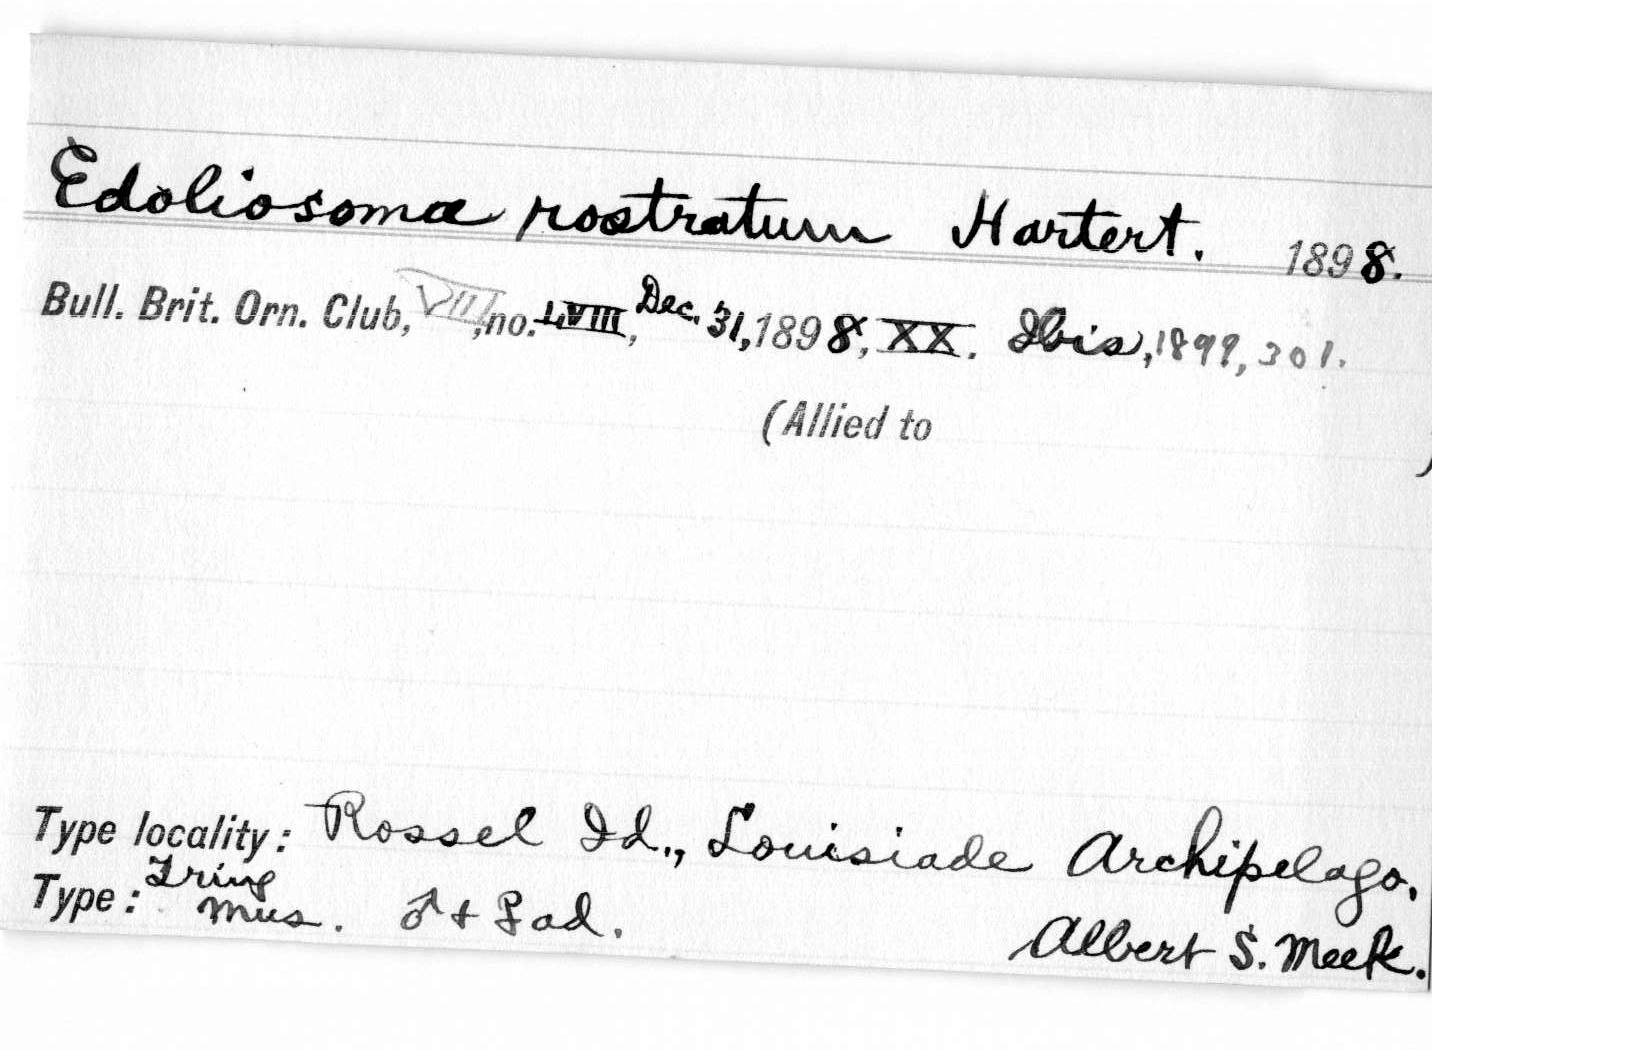 Edoliosoma rostratum Hartert. 1898.
Bull. Brit. Orn. Club, VIII, no. LVIII, Dec. 31, 1898, XX. Ibis, 1899, 301.
(Allied to )
Type locality: Rossel Id., Louisiade Archipelago.
Type: Tring Mus. ♂ + ♀ ad. Albert S. Meek.